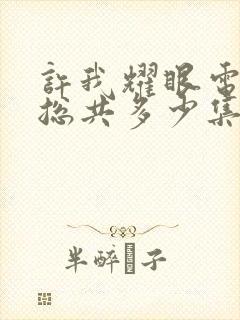 許我耀眼電
總共多少集
半醉 子